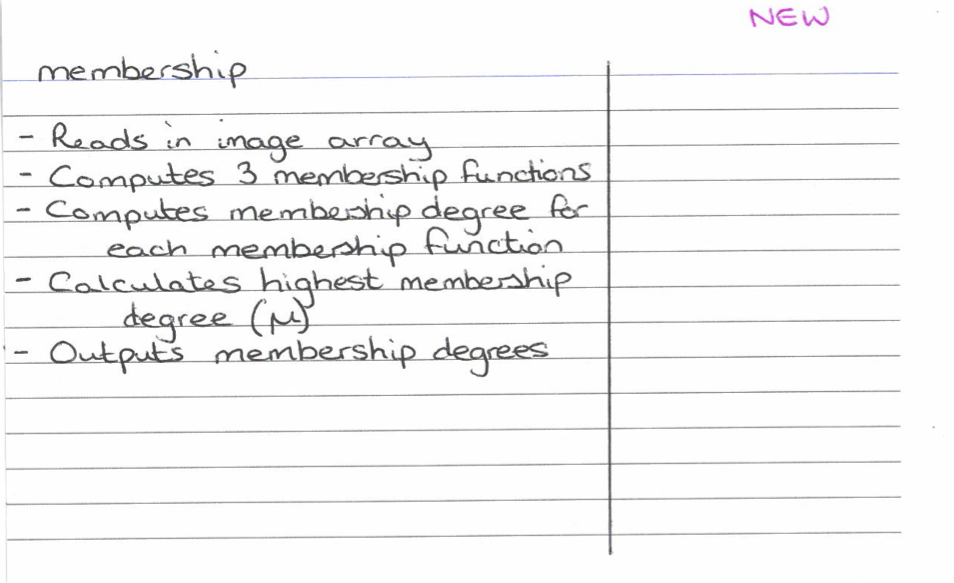 NEW
membership
- Reads in image array
- Computes 3 membership functions
- Computes membership degree for
each membership function
- Calculates highest membership
degree (μ)
- Outputs membership degrees